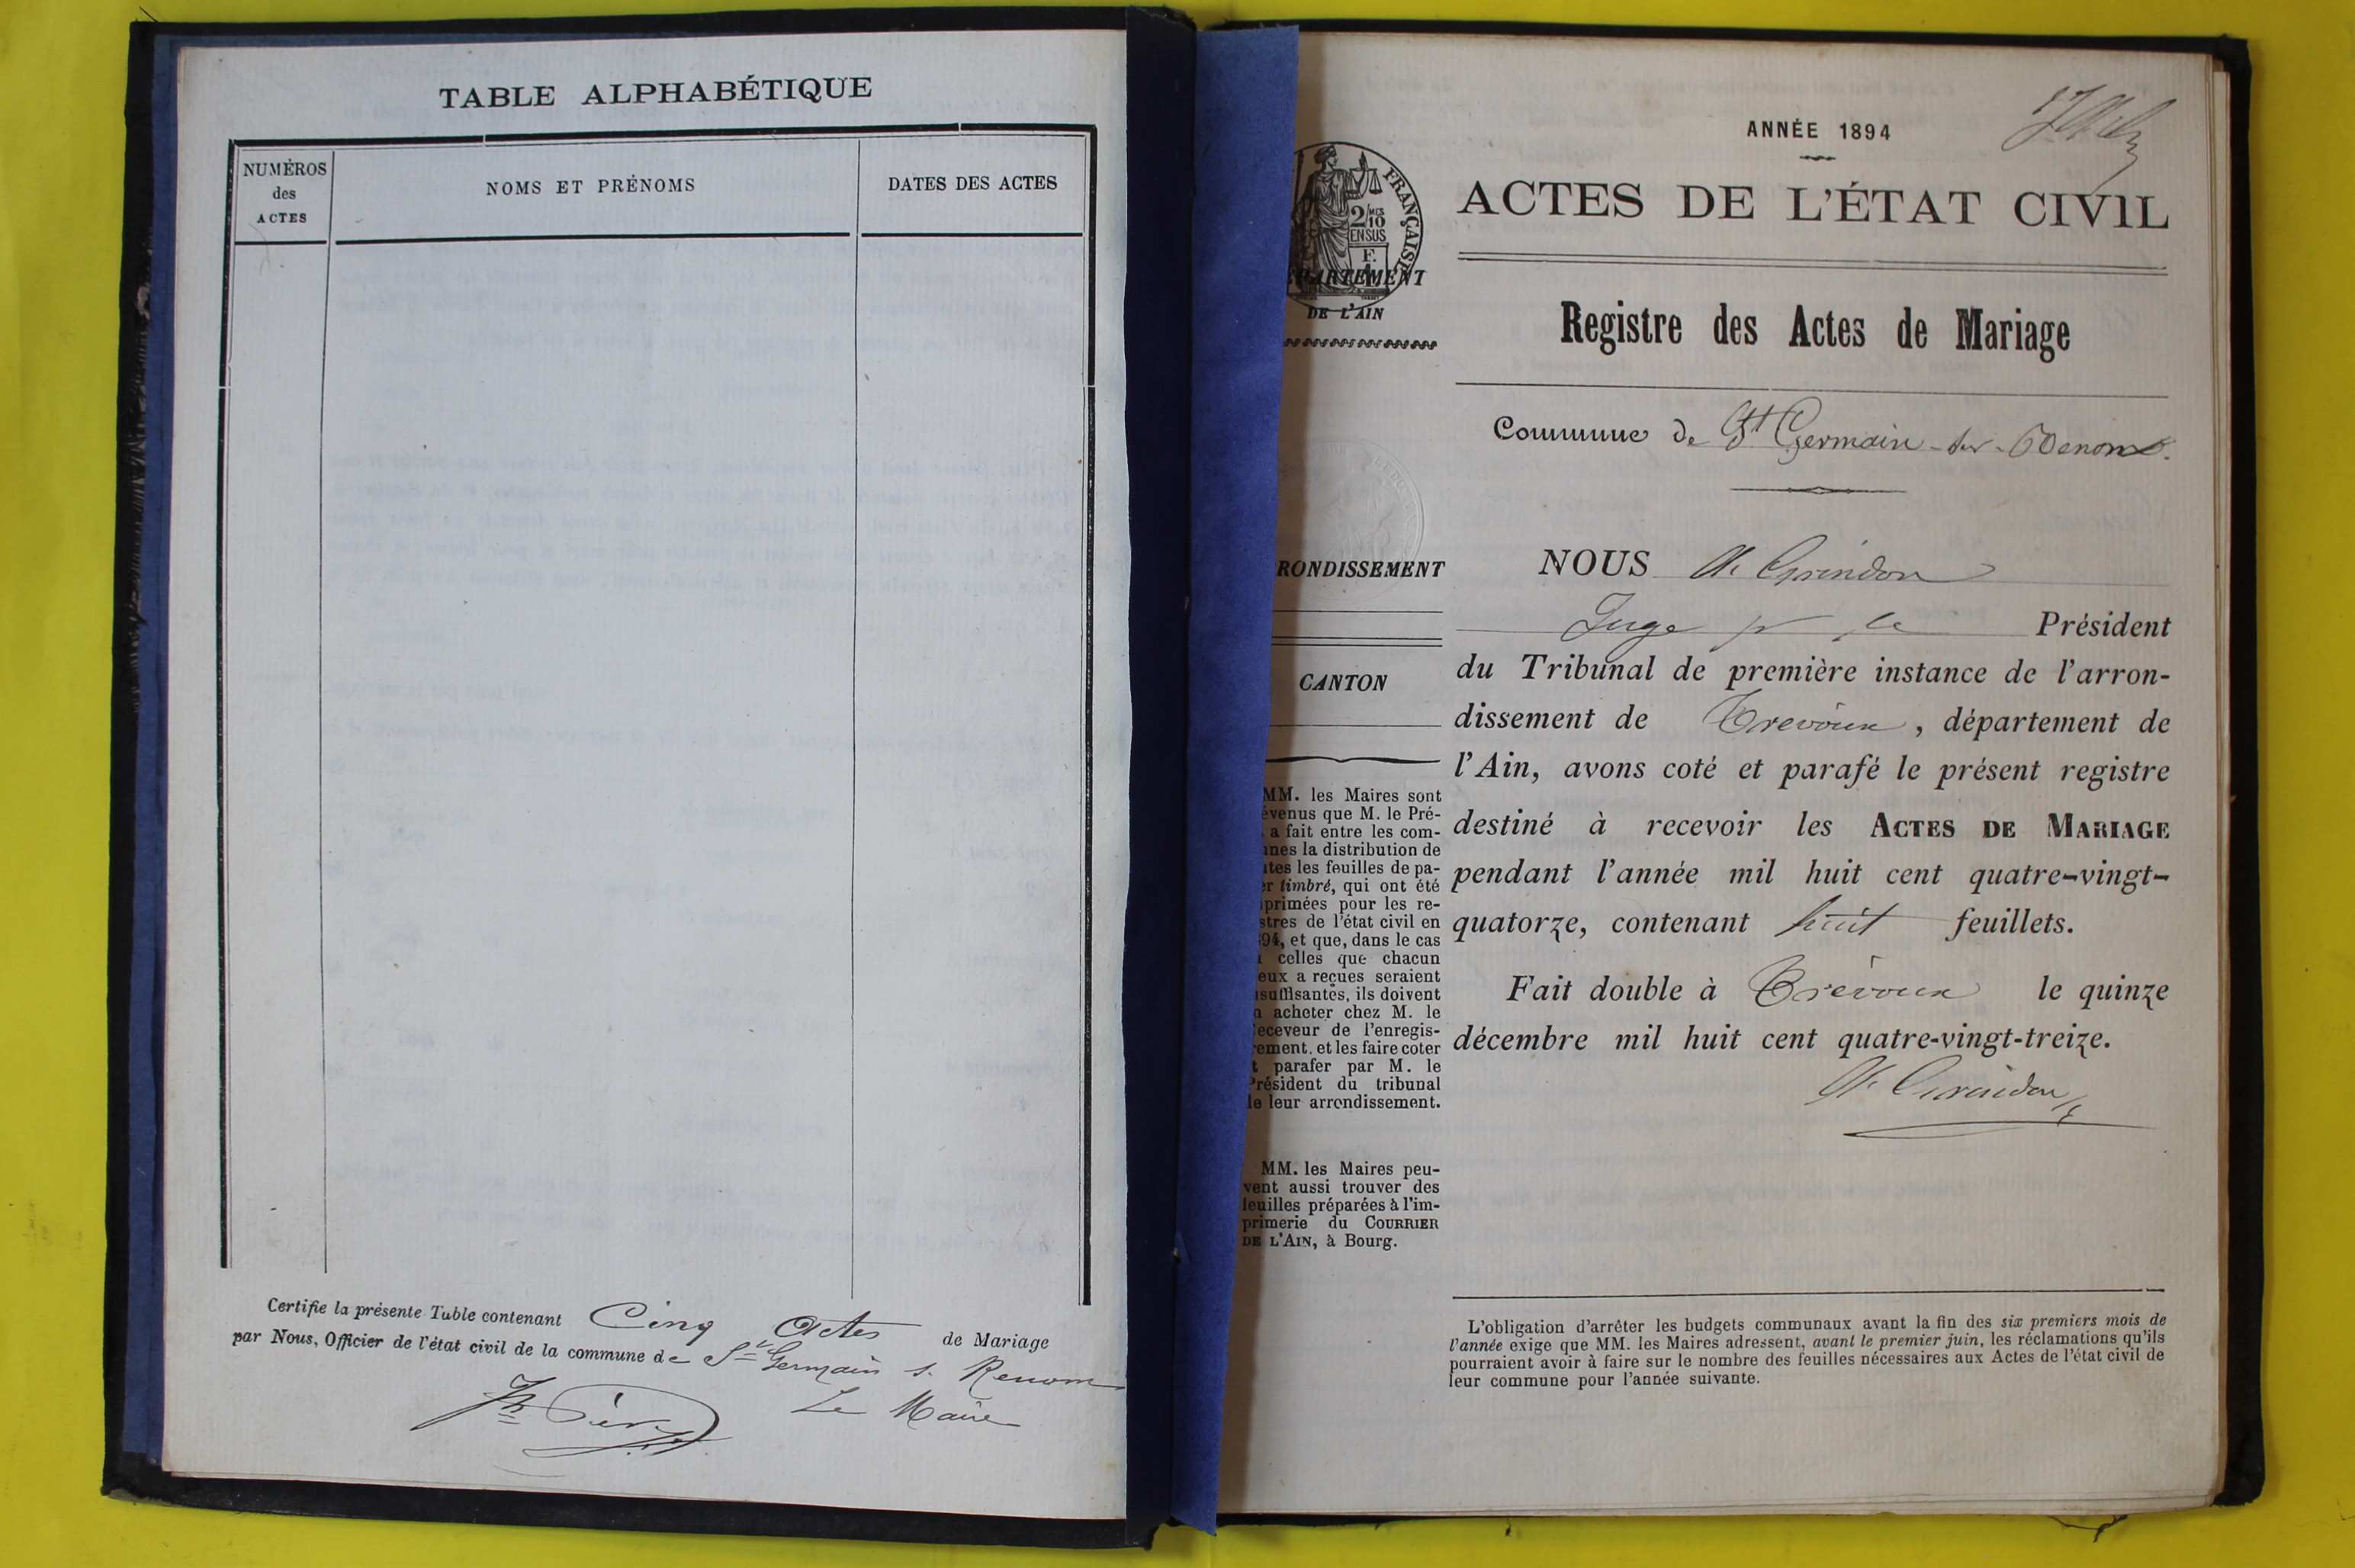 TABLE ALPHABÉTIQUE
NUMÉROS
des
ACTES
NOMS ET PRÉNOMS
DATES DES ACTES
Certifie la présente Table contenant Cinq Actes de Mariage
par Nous, Officier de l'état civil de la commune de St Germain s. Renom
Le Maire
ANNÉE 1894
ACTES DE L'ÉTAT CIVIL
FRANÇAISE
2/10
EN SUS
F.
DÉPARTEMENT
DE L'AIN
Registre des Actes de Mariage
Commune de St Germain-sur-Renom.
RONDISSEMENT
CANTON
NOUS M. Grindon
Juge pr le Président
du Tribunal de première instance de l'arron-
dissement de Trevoux, département de
l'Ain, avons coté et parafé le présent registre
destiné à recevoir les ACTES DE MARIAGE
pendant l'année mil huit cent quatre-vingt-
quatorze, contenant huit feuillets.
Fait double à Trévoux le quinze
décembre mil huit cent quatre-vingt-treize.
M. Grindon
MM. les Maires sont
évenus que M. le Pré-
a fait entre les com-
nes la distribution de
tes les feuilles de pa-
r timbré, qui ont été
primées pour les re-
stres de l'état civil en
94, et que, dans le cas
celles que chacun
eux a reçues seraient
suffisantes, ils doivent
acheter chez M. le
eceveur de l'enregis-
ement. et les faire coter
t parafer par M. le
Président du tribunal
de leur arrondissement.
MM. les Maires peu-
vent aussi trouver des
feuilles préparées à l'im-
primerie du COURRIER
DE L'AIN, à Bourg.
L'obligation d'arrêter les budgets communaux avant la fin des six premiers mois de
l'année exige que MM. les Maires adressent, avant le premier juin, les réclamations qu'ils
pourraient avoir à faire sur le nombre des feuilles nécessaires aux Actes de l'état civil de
leur commune pour l'année suivante.